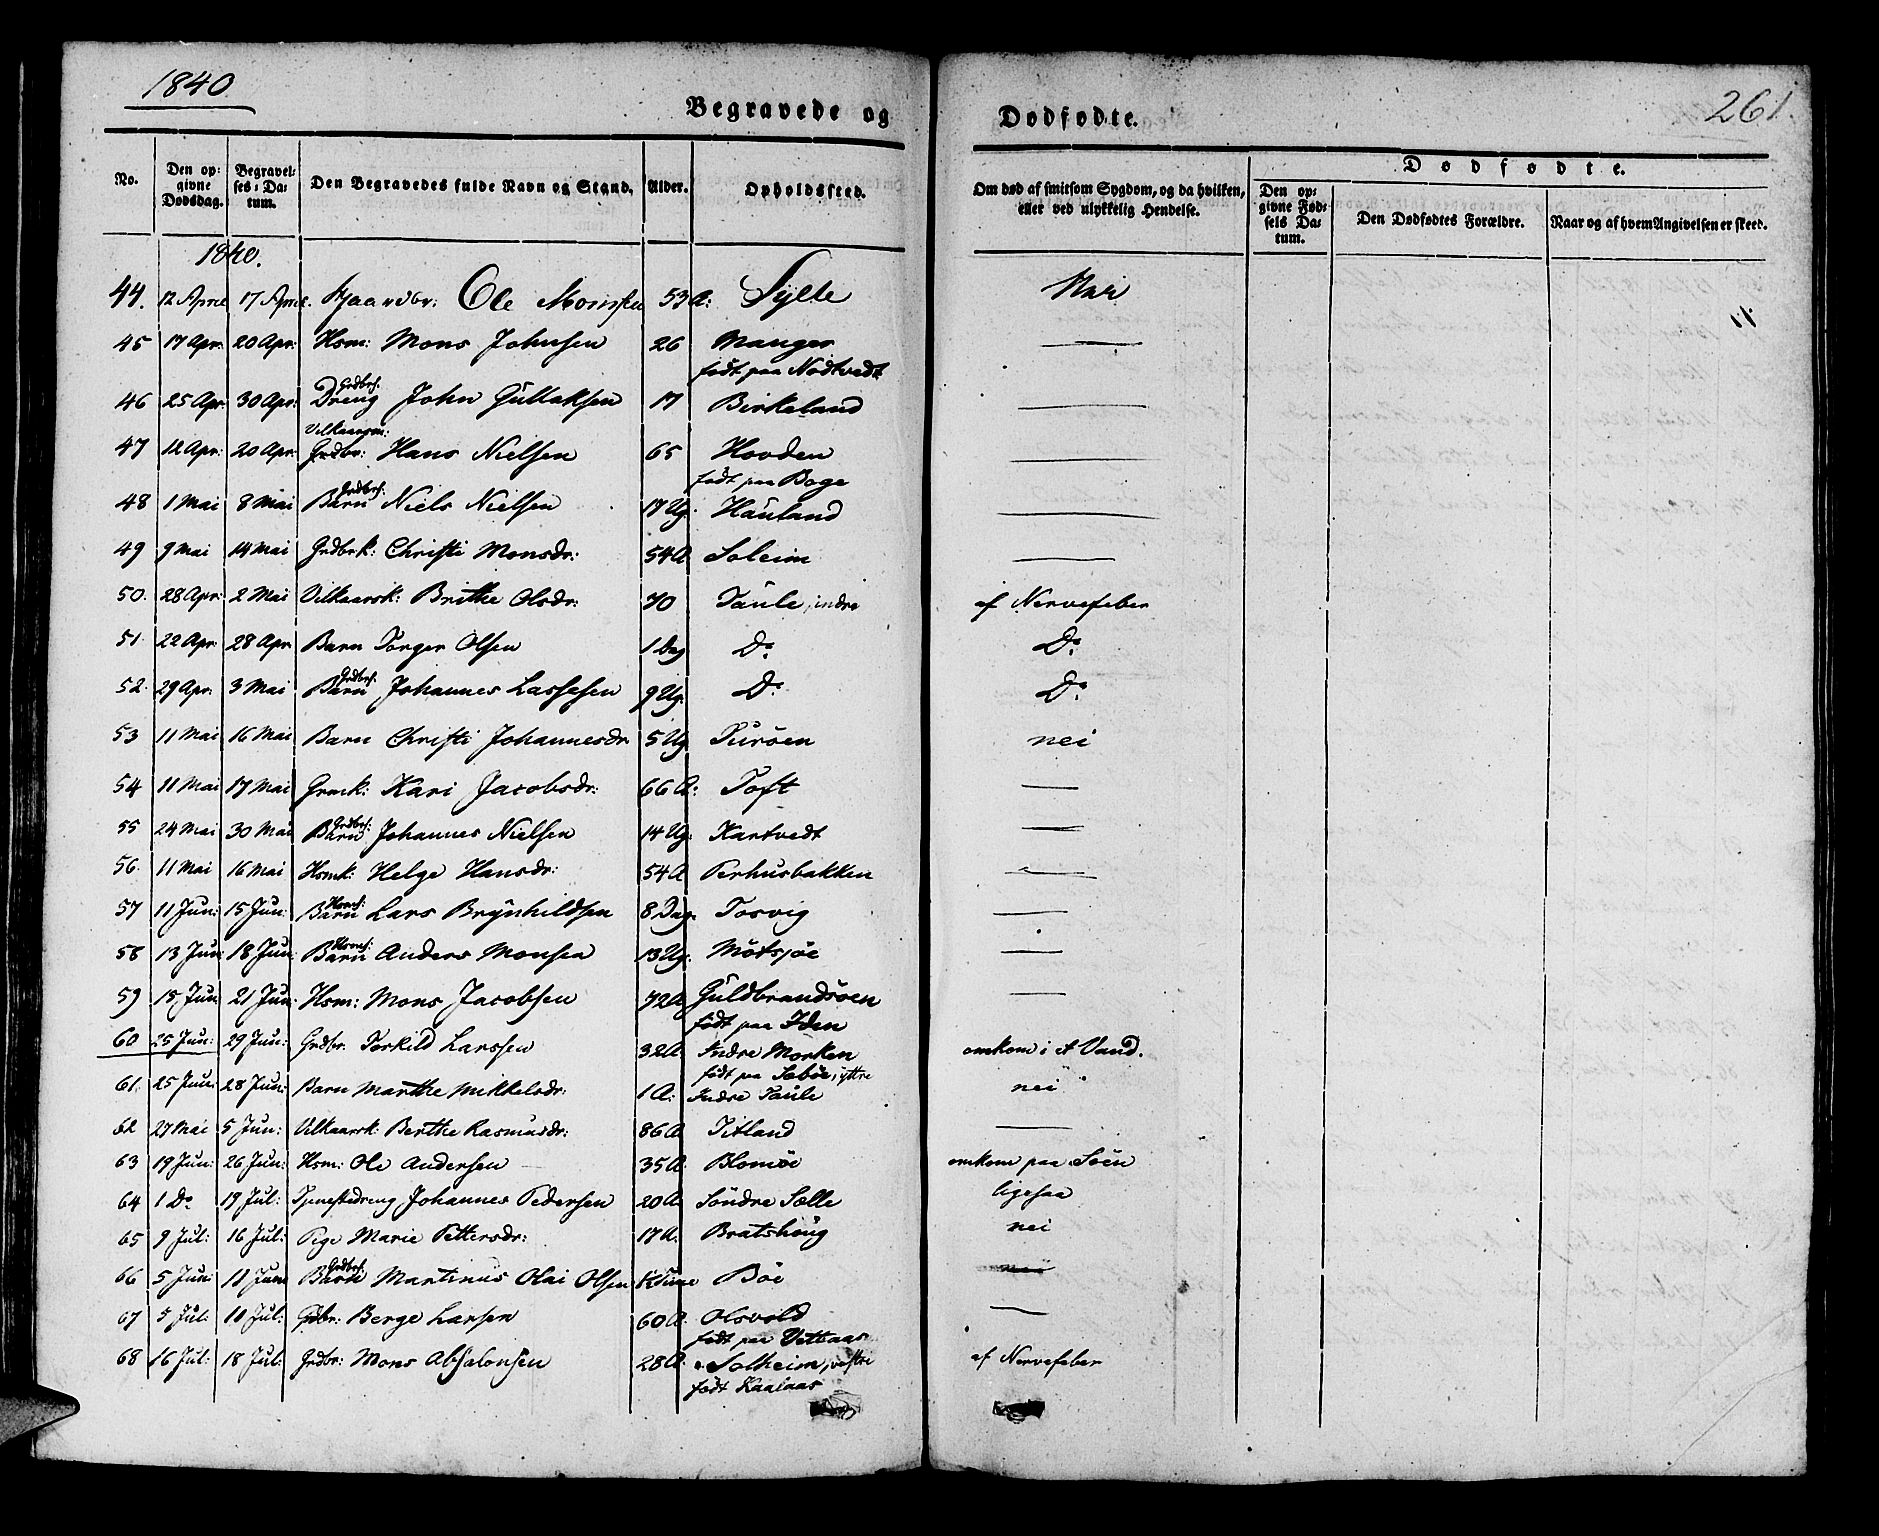 1840
Begravede og Dødfødte.
261
No. Den opgivne Dødsdag. Begravelses-Datum. Den Begravedes fulde Navn og Stand. Alder. Opholdssted. Om død af smitsom Sygdom, og da hvilken, eller ved ulykkelig Hendelse. Dødfødte.
Den opgivne Fødsels Datum. Den Dødfødtes Forældre. Naar og af hvem Angivelsen er skeed.
1840.
44. 12 April 17 April. Gaardbr: Ole Monsen 53 A: Sylte Nei
45 17 Apr: 20 Apr: Hsm: Mons Johnsen 26 Manger —
født paa Nødtvedt
46 25 Apr 30 Apr: Grdbrs. Dreng John Gullaksen 17 Birkeland —
47 12 Apr: 20 Apr: Vilkaarsm: Grdbr: Hans Nielsen 65 Hovden —
født paa Boge
48 1 Mai 8 Mai Grdbrs: Barn Niels Nielsen 17 Ug: Hauland —
49 9 Mai 14 Mai Grdbrk: Christi Monsdr: 54 A Soleim —
50. 28 Apr: 2 Mai Vilkaarsk: Brithe Olsdr: 70 Taule, indre af Nervefeber
51. 22 Apr: 28 Apr: Barn Torger Olsen 1 Dag Do. Do.
52. 29 Apr. 3 Mai Grdbrs: Barn Johannes Lassesen 9 Ug: Do. Do.
53 11 Mai 16 Mai Barn Christi Johannesdr 5 Ug Turøen nei
54 11 Mai 17 Mai Kari Jacobsdr: 66 A: Toft —
55 24 Mai 30 Mai Grdbrs: Barn Johannes Nielsen 14 Ug: Kartvedt —
56. 11 Mai 16 Mai Hsmk: Helge Hansdr: 54 A Perhusbakken —
57 11 Jun: 15 Jun: Hsms: Barn Lars Brynhildsen 8 Dag. Tosvig —
58 13 Jun: 18 Jun: Hsms: Barn Anders Monsen 13 Ug: Møtsjøe —
59 15 Jun 21 Jun: Hsm: Mons Jacobsen 72 A Guldbrandsøen —
født paa Iden
60 25 Jun: 29 Jun: Grdbr. Torkild Larssen 32 A Indre Morken omkom i et Vand.
født paa Sæbøe, ytre
61. 25 Jun: 28 Jun: Barn Marthe Mikkelsdr: 1 A: Indre Taule nei
62 27 Mai 5 Jun: Vilkaarsk: Berthe Rasmusdr: 86 A Titland —
63 19 Jun: 26 Jun: Hsm: Ole Andersen 35 A. Blomøe omkom paa Søen
64 1 Do 19 Jul: Tjenestedreng Johannes Pedersen 20 A Søndre Sælle ligesaa
65 9 Jul: 16 Jul: Pige Marie Pettersdr: 17 A. Bratshoug nei
66 5 Jun: 11 Jun: Grdbrs. Barn Martinus Olai Olsen ½ Time Bøe nei
67 5 Jul: 11 Jul: Grdbr: Berge Larsen 60 A. Olsvold —
født paa Vetaas
68 16 Jul: 18 Jul: Grdbr: Mons Absalonsen 28 A. Solheim, vestre af Nervefeber
født Kaalaas